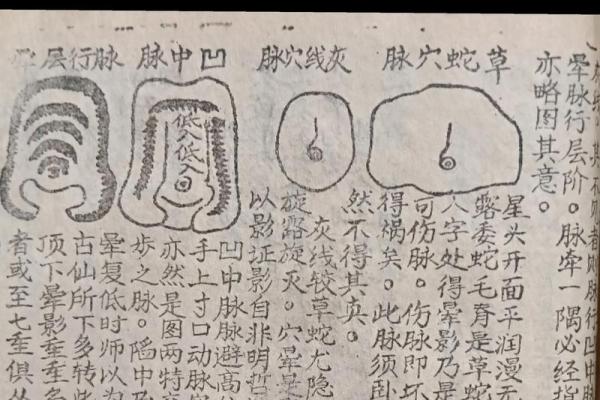 晕脉行层阶。脉牵一隅必经指
亦略图其意。
草蛇穴脉
星头开面平润漫无
露委蛇毛脊是草蛇
人字处得晕影乃是
可伤脉。伤脉即坏
得祸矣。此脉须卧
然不得其真。
灰线穴脉
灰线较草蛇尤隐
旋露旋灭。穴晕是
以影证影自非明哲
凹中脉
低入低入
凹中脉脉避高
手上寸口动脉
亦然是图两特
步之脉。陷中乃
脉行层
晕复低时师以为
古仙所下多转
顶下晕影重重
者或至七重俱